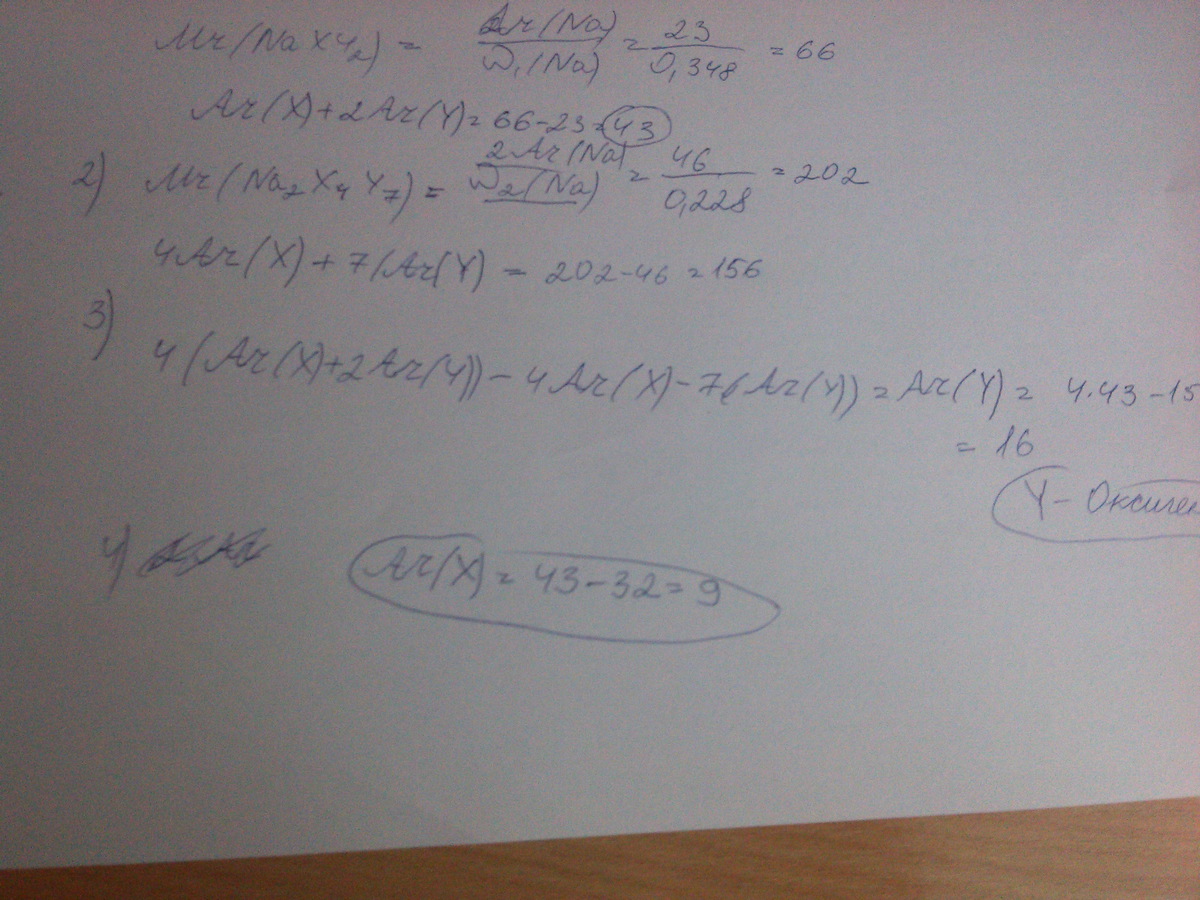 Mr(NaXY₂) = Ar(Na)/ω₁(Na) = 23/0,348 = 66
Ar(X)+2Ar(Y)= 66-23=43
2) Mr(Na₂X₄Y₇) = 2Ar(Na)/ω₂(Na) = 46/0,228 = 202
4Ar(X)+7(Ar(Y) = 202-46=156
3)
4(Ar(X)+2Ar(Y))-4Ar(X)-7(Ar(Y))=Ar(Y)= 4·43-15
= 16
Y-Оксиген
4) Ar(X)= 43-32=9